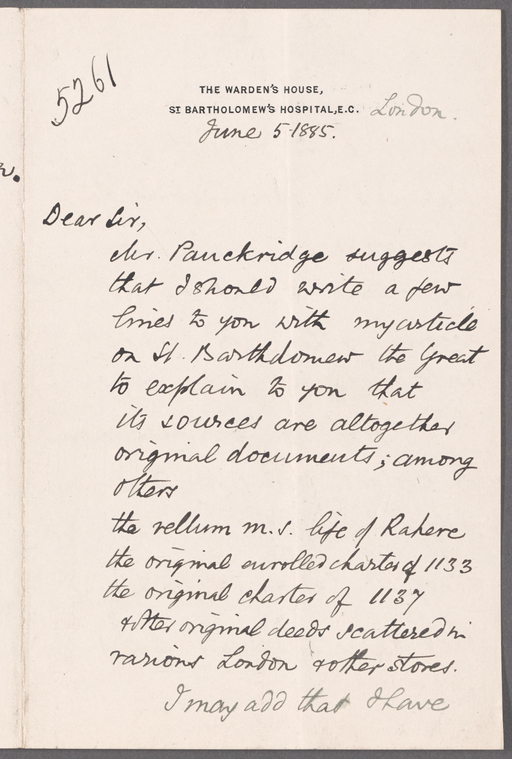 5261
THE WARDEN'S HOUSE,
ST BARTHOLOMEW'S HOSPITAL, E.C. London.
June 5-1885.
Dear Sir,
Mr. Pauckridge suggests
that I should write a few
lines to you with my article
on St. Bartholomew the Great
to explain to you that
its sources are altogether
original documents; among
others
the vellum m.s. life of Rahere
the original enrolled charter of 1133
the original charter of 1137
& other original deeds scattered in
various London & other stores.
I may add that I have